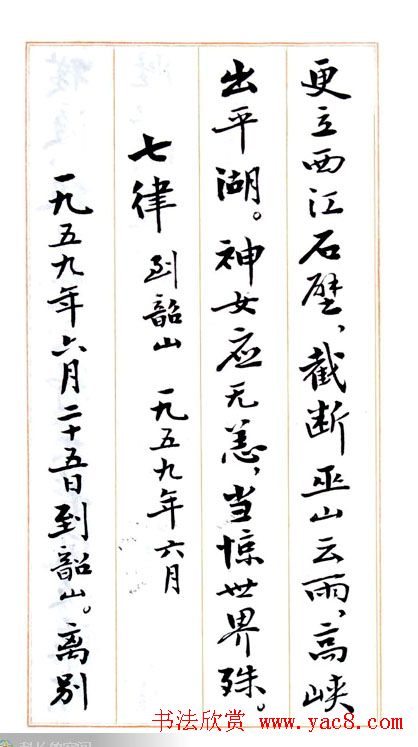 更立西江石壁、截断巫山云雨，高峡
出平湖。神女应无恙，当惊世界殊。
七律 到韶山 一九五九年六月
一九五九年六月二十五日到韶山。离别
书法欣赏 www.yac8.com